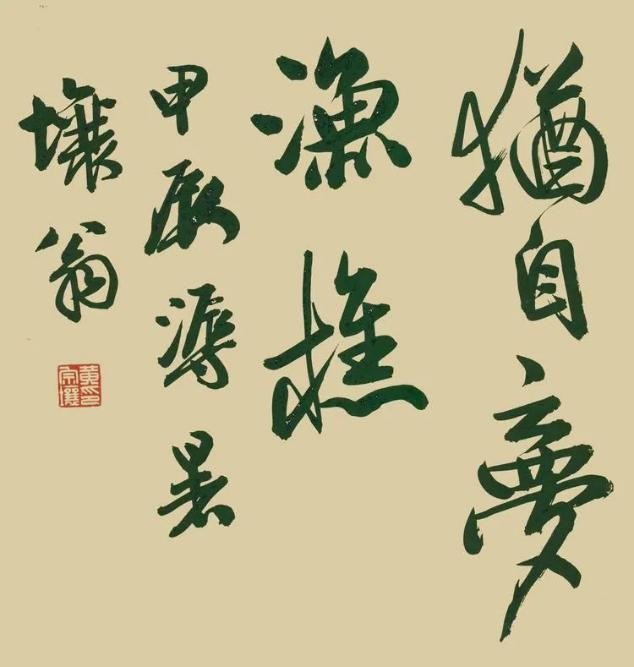 猶自夢
漁樵
甲辰溽暑
壤翁
黄印宗壤